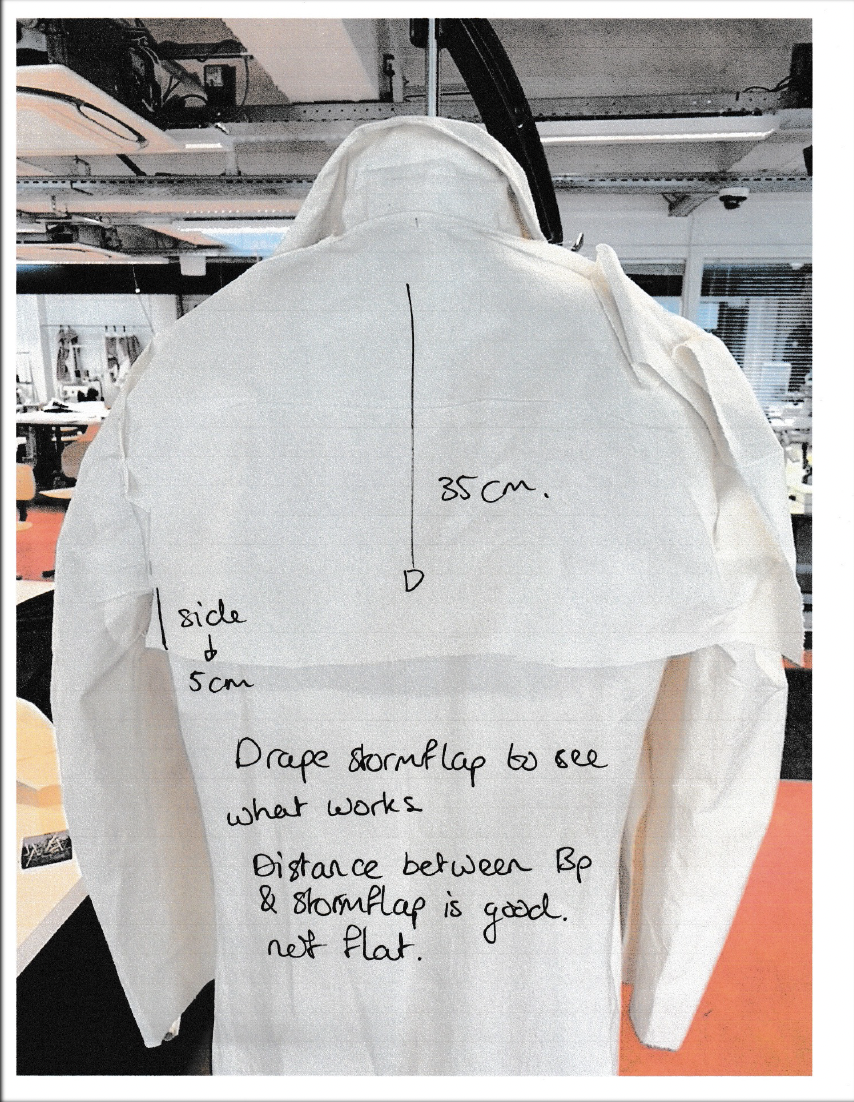 35cm.
side
5cm
Drape stormflap to see
what works
Distance between Bp
& stormflap is good.
not flat.